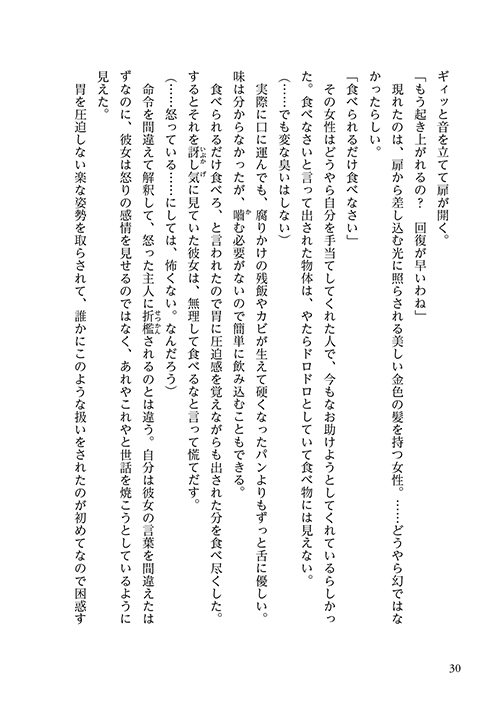 ギィッと音を立てて扉が開く。
「もう起き上がれるの？　回復が早いわね」
　現れたのは、扉から差し込む光に照らされる美しい金色の髪を持つ女性。……どうやら幻ではな
かったらしい。
「食べられるだけ食べなさい」
　その女性はどうやら自分を手当てしてくれた人で、今もなお助けようとしてくれているらしかっ
た。食べなさいと言って出された物体は、やたらドロドロとしていて食べ物には見えない。
（……でも変な臭いはしない）
　実際に口に運んでも、腐りかけの残飯やカビが生えて硬くなったパンよりもずっと舌に優しい。
味は分からなかったが、噛む必要がないので簡単に飲み込むこともできる。
　食べられるだけ食べろ、と言われたので胃に圧迫感を覚えながらも出された分を食べ尽くした。
するとそれを訝し気に見ていた彼女は、無理して食べるなと言って慌てだす。
（……怒っている……にしては、怖くない。なんだろう）
　命令を間違えて解釈して、怒った主人に折檻されるのとは違う。自分は彼女の言葉を間違えたは
ずなのに、彼女は怒りの感情を見せるのではなく、あれやこれやと世話を焼こうとしているように
見えた。
　胃を圧迫しない楽な姿勢を取らされて、誰かにこのような扱いをされたのが初めてなので困惑す
30